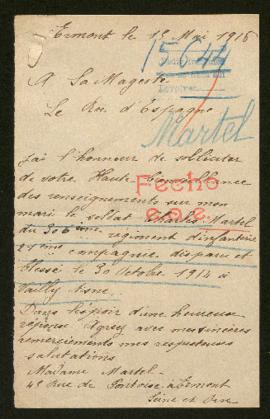 Ermont le 12 Mai 1916
15644
A Sa Majesté
Le Roi d'Espagne
Martel
J'ai l'honneur de solliciter
de votre Haute bienveillance
des renseignements sur mon
Fecho
mari le soldat Martel
du 306ème régiment d'infanterie
compagnie disparu et
blessé le 30 Octobre 1914 à
Vailly Aisne
Dans l'espoir d'une heureuse
réponse Agréez avec mes sincères
remerciements mes respectueuses
salutations
Madame Martel
Rue de Pontoise à Ermont
Seine et Oise